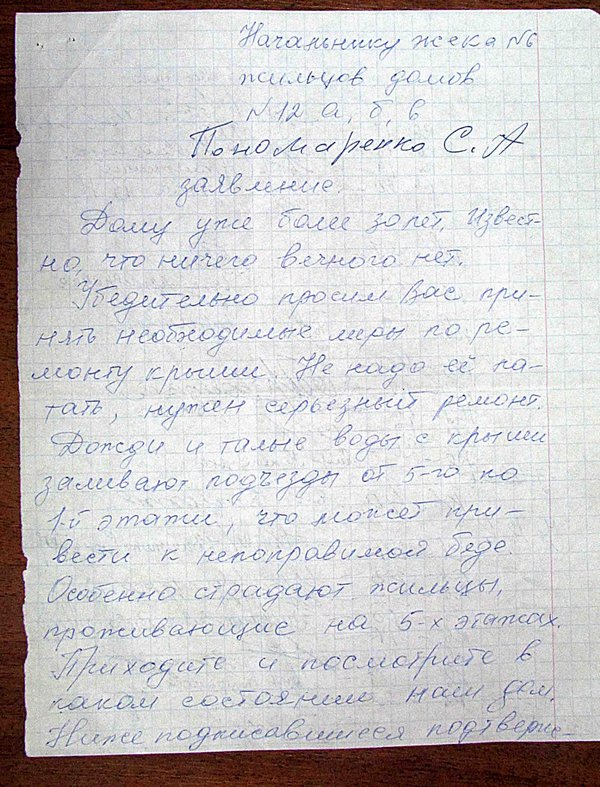 Начальнику жека №6
жильцов домов
№12 а, б, в
Пономаренко С.А
заявление.
Дому уже более 30 лет. Извест-
но, что ничего вечного нет.
Убедительно просим Вас при-
нять необходимые меры по ре-
монту крыши. Не надо её ла-
тать, нужен серьезный ремонт.
Дожди и талые воды с крыши
заливают подъезды от 5-го по
1-й этажи, что может при-
вести к непоправимой беде.
Особенно страдают жильцы,
проживающие на 5-х этажах.
Приходите и посмотрите в
каком состоянии наш дом.
Ниже подписавшиеся подтверж-